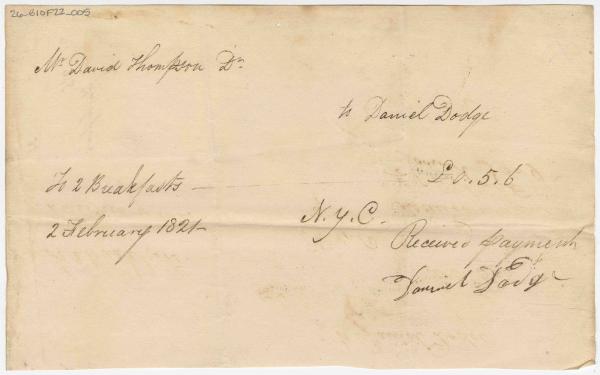 26-B10F22_005
Mr. David Thompson Dr.
to Daniel Dodge
To 2 Breakfasts — £0.5.6
2 February 1821- N.Y.C.
Received payment
Daniel Dodge